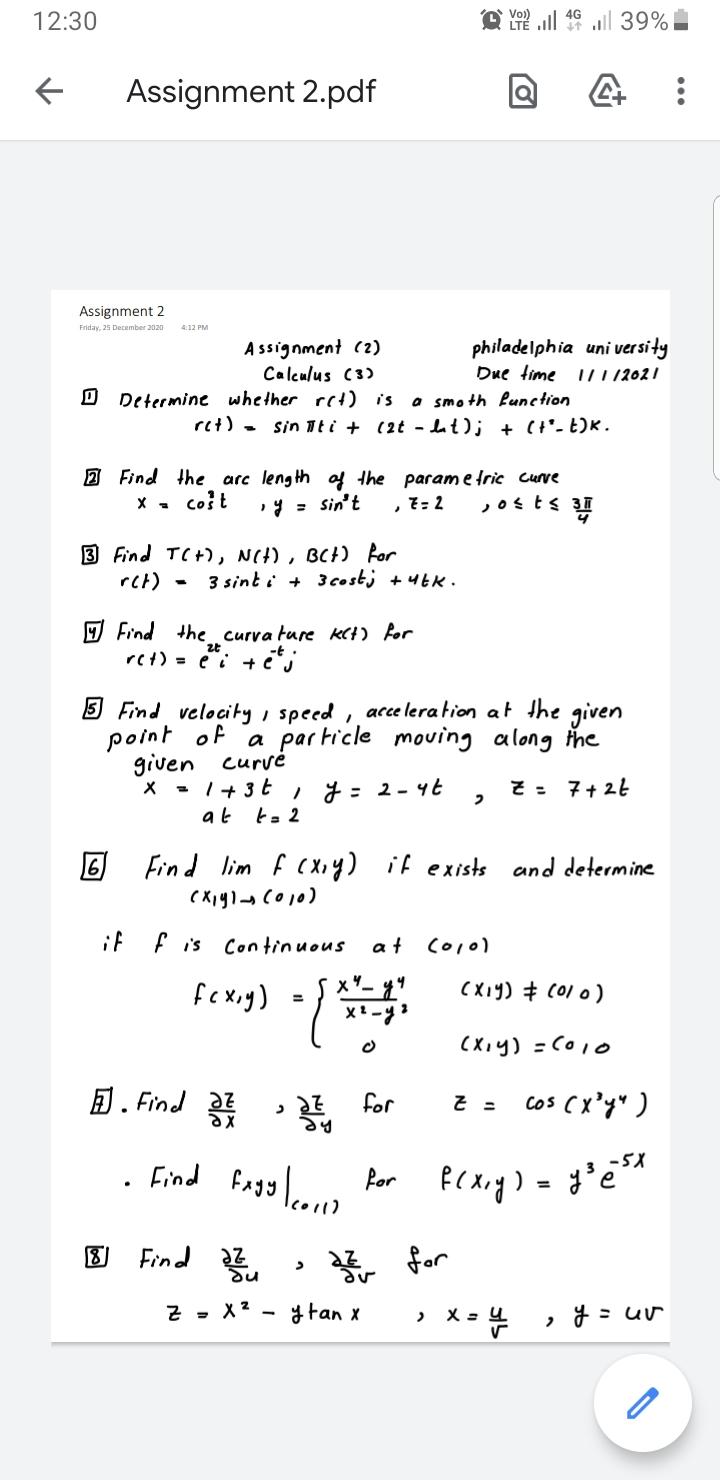 12:30 Vo)) LTE 4G 39%
Assignment 2.pdf
Assignment 2
Friday, 25 December 2020 4:12 PM
Assignment (2) philadelphia university
Calculus (3) Due time 1/1/2021
1 Determine whether r(t) is a smoth function
r(t) = sin πt i + (2t - ln t) j + (t² - t) k.
2 Find the arc length of the parametric curve
x = cos³t , y = sin³t , z = 2 , 0 ≤ t ≤ 3π/4
3 Find T(t), N(t), B(t) for
r(t) = 3 sint i + 3 cost j + 4t k.
4 Find the curvature K(t) for
r(t) = e^2t i + e^-t j
5 Find velocity, speed, acceleration at the given
point of a particle moving along the
given curve
x = 1 + 3t , y = 2 - 4t , z = 7 + 2t
at t = 2
6 Find lim f(x,y) if exists and determine
(x,y)→(0,0)
if f is continuous at (0,0)
f(x,y) = { x⁴ - y⁴ / x² - y² (x,y) ≠ (0,0)
0 (x,y) = (0,0
7 . Find ∂z/∂x , ∂z/∂y for z = cos(x³y⁴)
. Find fxyy|(0,1) for f(x,y) = y³ e^-5x
8 Find ∂z/∂u , ∂z/∂v for
z = x² - y tan x , x = u/v , y = uv